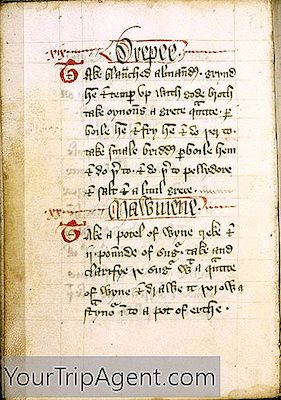 xix
Drepee
Take blaunched almandes grynd
hem & temp up with gode broth
take oynons a grete qntite p
boile hem & fry hem & do þer to
take smale bridds pboile hem
& do þer to & do þer to pellydore
& salt & a litul grece
xx
Mawmene
Take a potel of wyne greke &
ii pounde of sugr take and
clarfye þe sugr with a qntite
of wyne & drawe it þorow a
straynor in to a pot of erthe
YourTripAgent.com